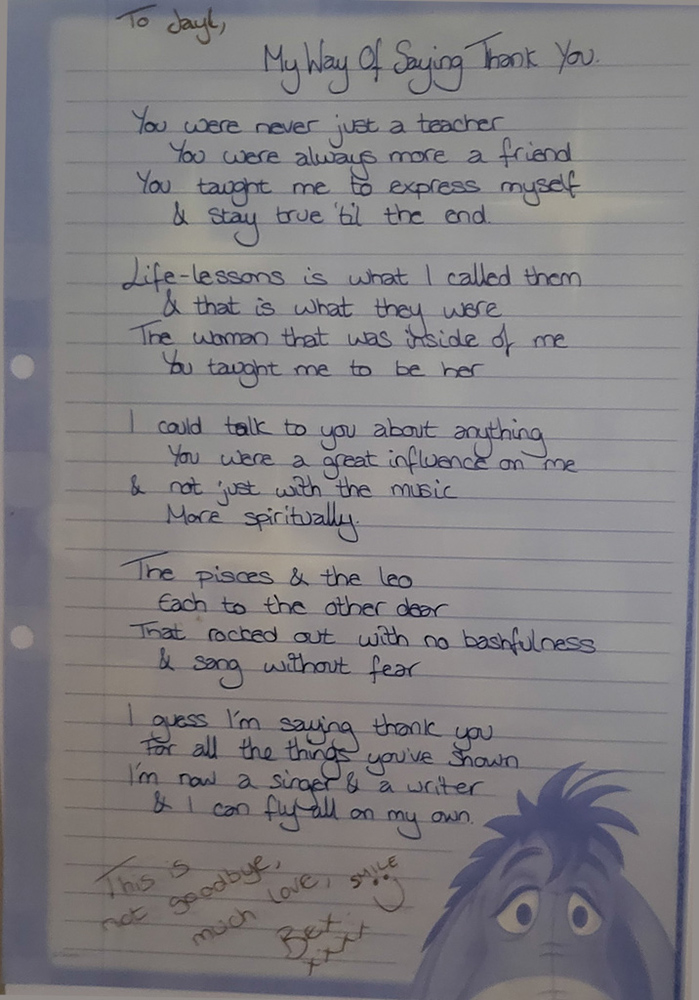 To Jayl,
My Way Of Saying Thank You.
You were never just a teacher
You were always more a friend
You taught me to express myself
& stay true 'til the end.
Life-lessons is what I called them
& that is what they were
The woman that was inside of me
You taught me to be her
I could talk to you about anything
You were a great influence on me
& not just with the music
More spiritually.
The pisces & the leo
Each to the other dear
That rocked out with no bashfulness
& sang without fear
I guess I'm saying thank you
For all the things you've shown
I'm now a singer & a writer
& I can fly all on my own.
This is
not goodbye,
much love, SMILE
Bex
xxxx